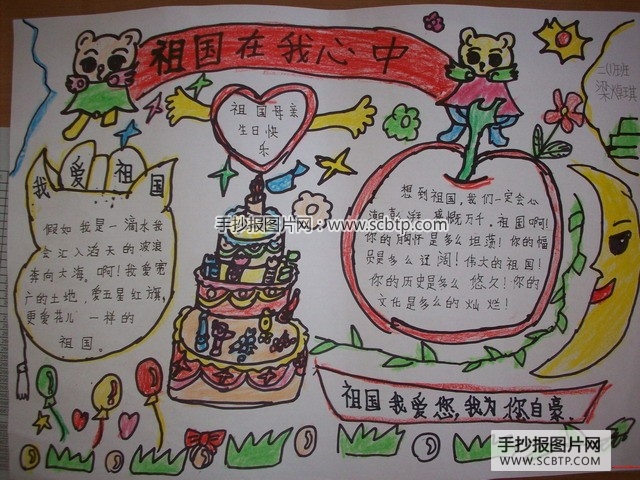 祖国在我心中
三(1)班
梁
祖国母亲
生日快
乐
我爱祖国
假如我是一滴水我
会汇入滔天的波浪
奔向大海。啊!我爱宽
广的土地,爱五星红旗,
更爱花儿一样的
祖国。
想到祖国,我们一定会心
潮彭湃,感慨万千。祖国啊!
你的胸怀是多么坦荡!你的幅
员是多么辽阔!伟大的祖国!
你的历史是多么悠久!你的
文化是多么的灿烂!
手抄报图片网:www.scbtp.com
祖国我爱您,我为你自豪.
手抄报图片网
WWW.SCBTP.COM